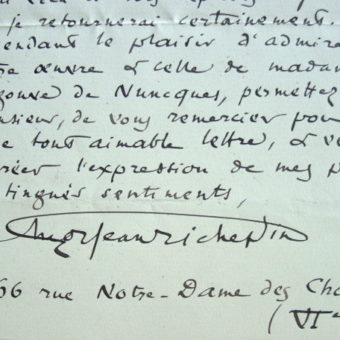 je retournerai certainement.
endant le plaisir d'admire
re œuvre & celle de madam
gouve de Nuncques, permettez
nsieur, de vous remercier pour
e tout aimable lettre, & ve
réer l'expression de mes p
tingués sentiments,
Jean Richepin
66 rue Notre-Dame des Cha
(VIe